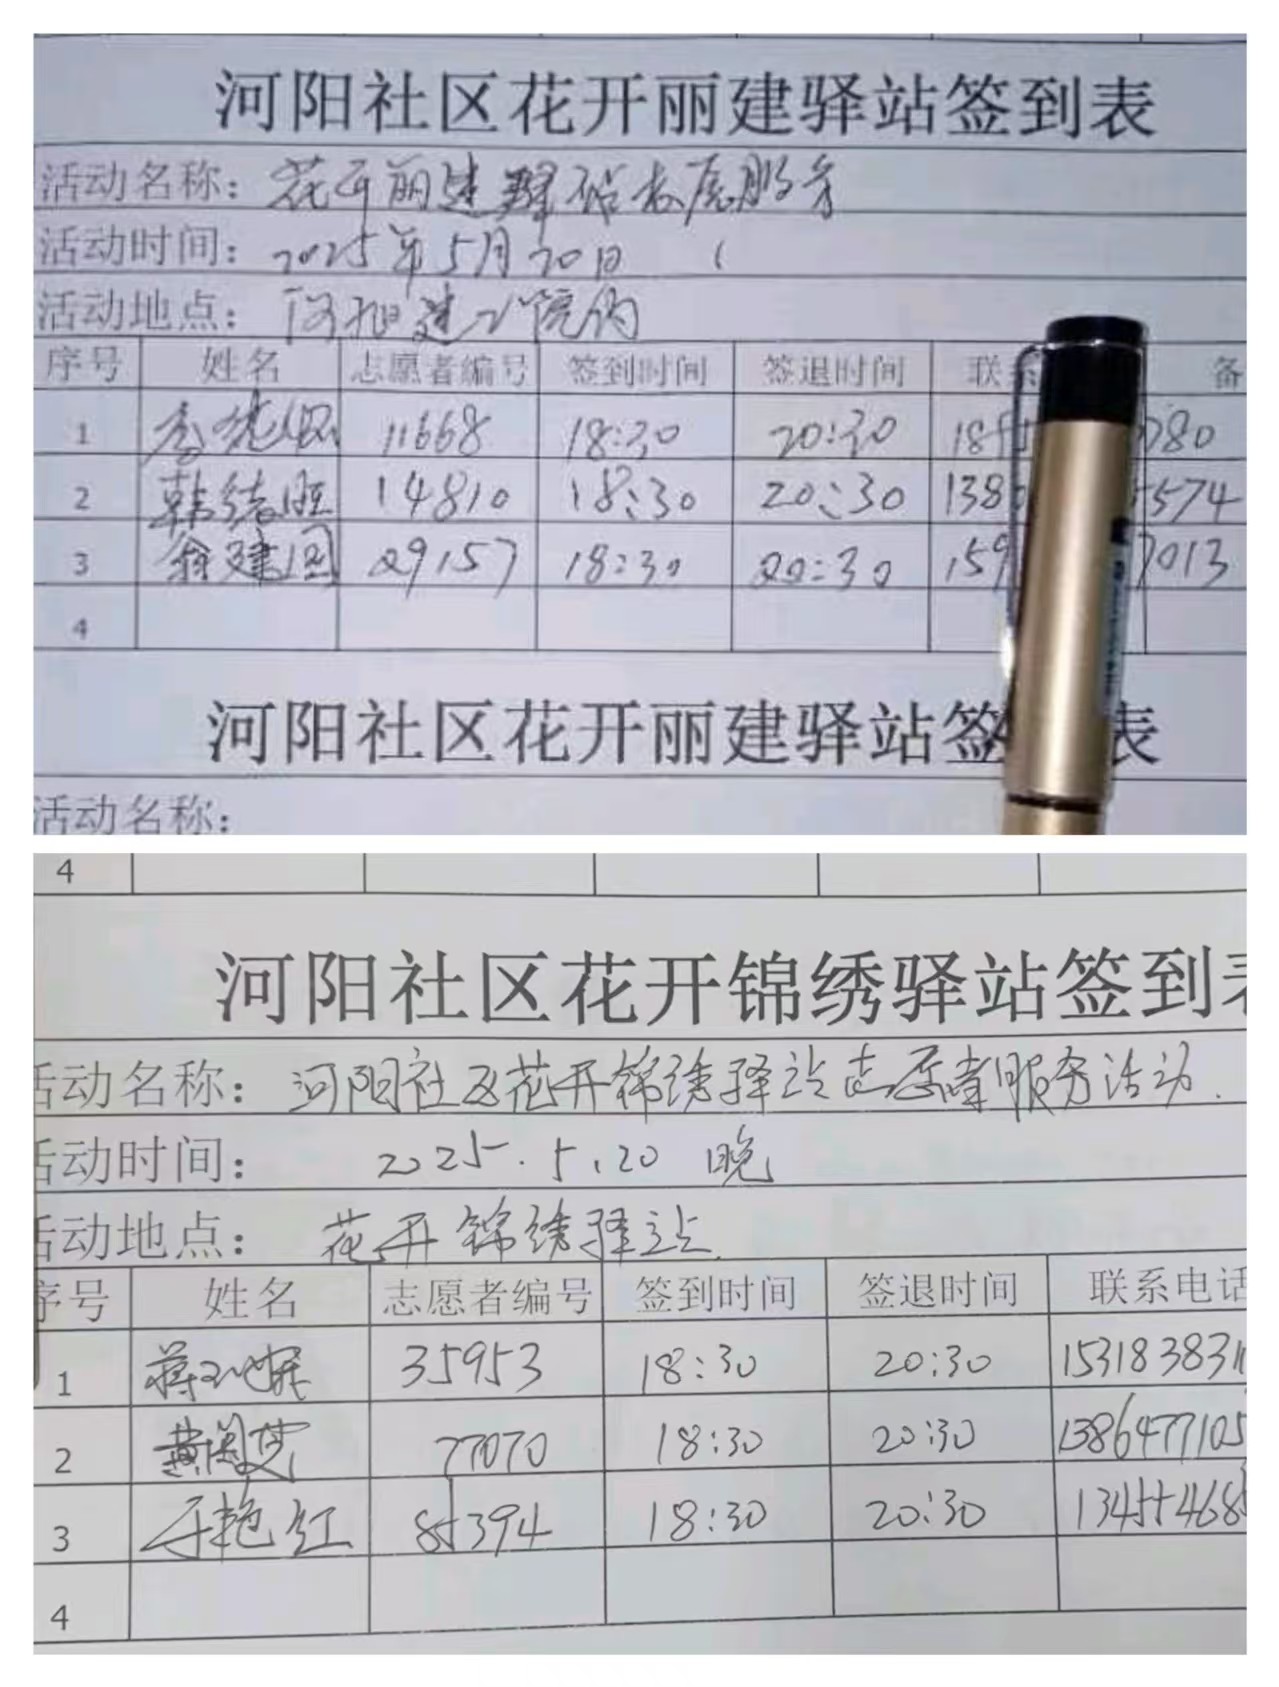 河阳社区花开丽建驿站签到表
活动名称：花开丽建驿站志愿服务
活动时间：2025年5月20日
活动地点：河阳建工院内
序号 姓名 志愿者编号 签到时间 签退时间 联系 备
1 11668 18:30 20:30 780
2 韩绪胜 14810 18:30 20:30 138 5574
3 翁建国 29157 18:30 20:30 159 7013
4
河阳社区花开丽建驿站签 表
活动名称：
4
河阳社区花开锦绣驿站签到表
活动名称：河阳社区花开锦绣驿站志愿者服务活动.
活动时间： 2025.5.20 晚
活动地点： 花开锦绣驿站
序号 姓名 志愿者编号 签到时间 签退时间 联系电话
1 35953 18:30 20:30 153183831
2 77070 18:30 20:30 1386477105
3 于艳红 85394 18:30 20:30 134554685
4